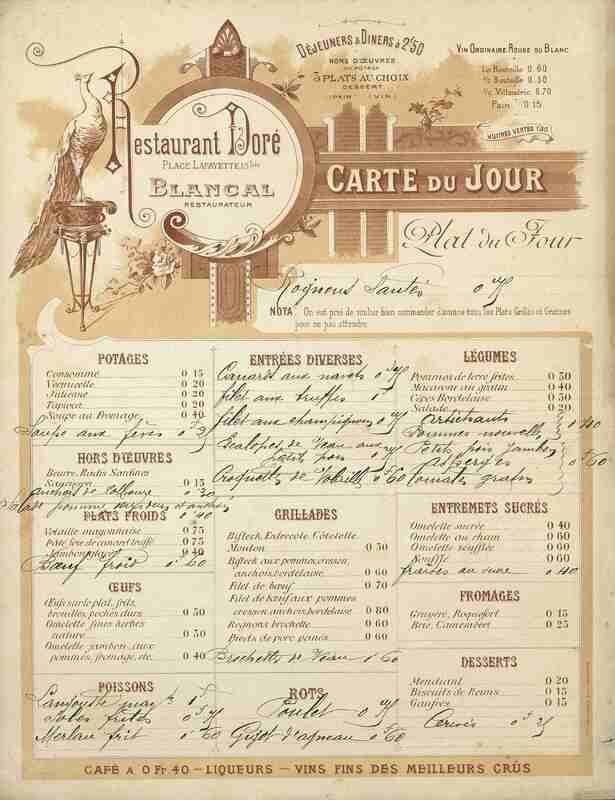 Restaurant Doré
PLACE LAFAYETTE,
BLANCAL
RESTAURATEUR
DÉJEUNERS & DINERS à 2f50
HORS D'ŒUVRES
OU POTAGE
3 PLATS AU CHOIX
DESSERT
(PAIN) (VIN)
VIN ORDINAIRE ROUGE OU BLANC
La Bouteille 0.60
½ Bouteille 0.30
0.70
Pain 0.15
HUITRES VERTES
CARTE DU JOUR
Plat du Jour
Rognons Sautés 0 75
NOTA On est prié de vouloir bien commander d'avance tous les Plats Grillés et Garnis
pour ne pas attendre
POTAGES
Consommé 0 15
Vermicelle 0 20
Julienne 0 20
Tapioca 0 20
Soupe au Fromage 0 40
Soupe aux fèves 0
HORS D'ŒUVRES
Beurre, Radis Sardines
Saucisson 0 15
anchois de Collioure 0 30
PLATS FROIDS 0 40
Volaille mayonnaise 0 75
Pâté foie de canard truffé 0 75
Jambon glacé 0 40
Bœuf froid 0 60
ŒUFS
Œufs sur le plat, frits,
brouillés, pochés, durs 0 50
Omelette fines herbes
nature 0 50
Omelette jambon, aux
pommes, fromage, etc. 0 40
POISSONS
Langouste may 1 f
Soles frites 0 75
Merlan frit 0 60
ENTRÉES DIVERSES
Canard aux navets 0 75
filet aux truffes 1
filet aux champignons 0 75
Escalopes de Veau aux
petits pois 0
Croquette de Volaille 0 60
GRILLADES
Bifteck, Entrecôte Côtelette
Mouton 0 50
Bifteck aux pommes, cresson,
anchois, bordelaise 0 60
Filet de bœuf 0 70
Filet de bœuf aux pommes
cresson, anchois, bordelaise 0 80
Rognons brochette 0 60
Pieds de porc panés 0 60
Brochette de Veau 0 60
ROTS
Poulet 0 75
Gigot d'agneau 0 60
LÉGUMES
Pommes de terre frites 0 30
Macaroni au gratin 0 40
Cèpes Bordelaise 0 50
Salade 0 20
artichauts
Pommes nouvelles 0 40
Petits pois Jambon
asperges 0 60
tomates gratin
ENTREMETS SUCRÉS
Omelette sucrée 0 40
Omelette au rhum 0 60
Omelette soufflée 0 60
Soufflé 0 60
fraises au sucre 0 40
FROMAGES
Gruyère, Roquefort 0 15
Brie, Camembert 0 25
DESSERTS
Mendiant 0 20
Biscuits de Reims 0 15
Gaufres 0 15
Cerises 0
CAFÉ A 0 Fr 40 – LIQUEURS – VINS FINS DES MEILLEURS CRÛS